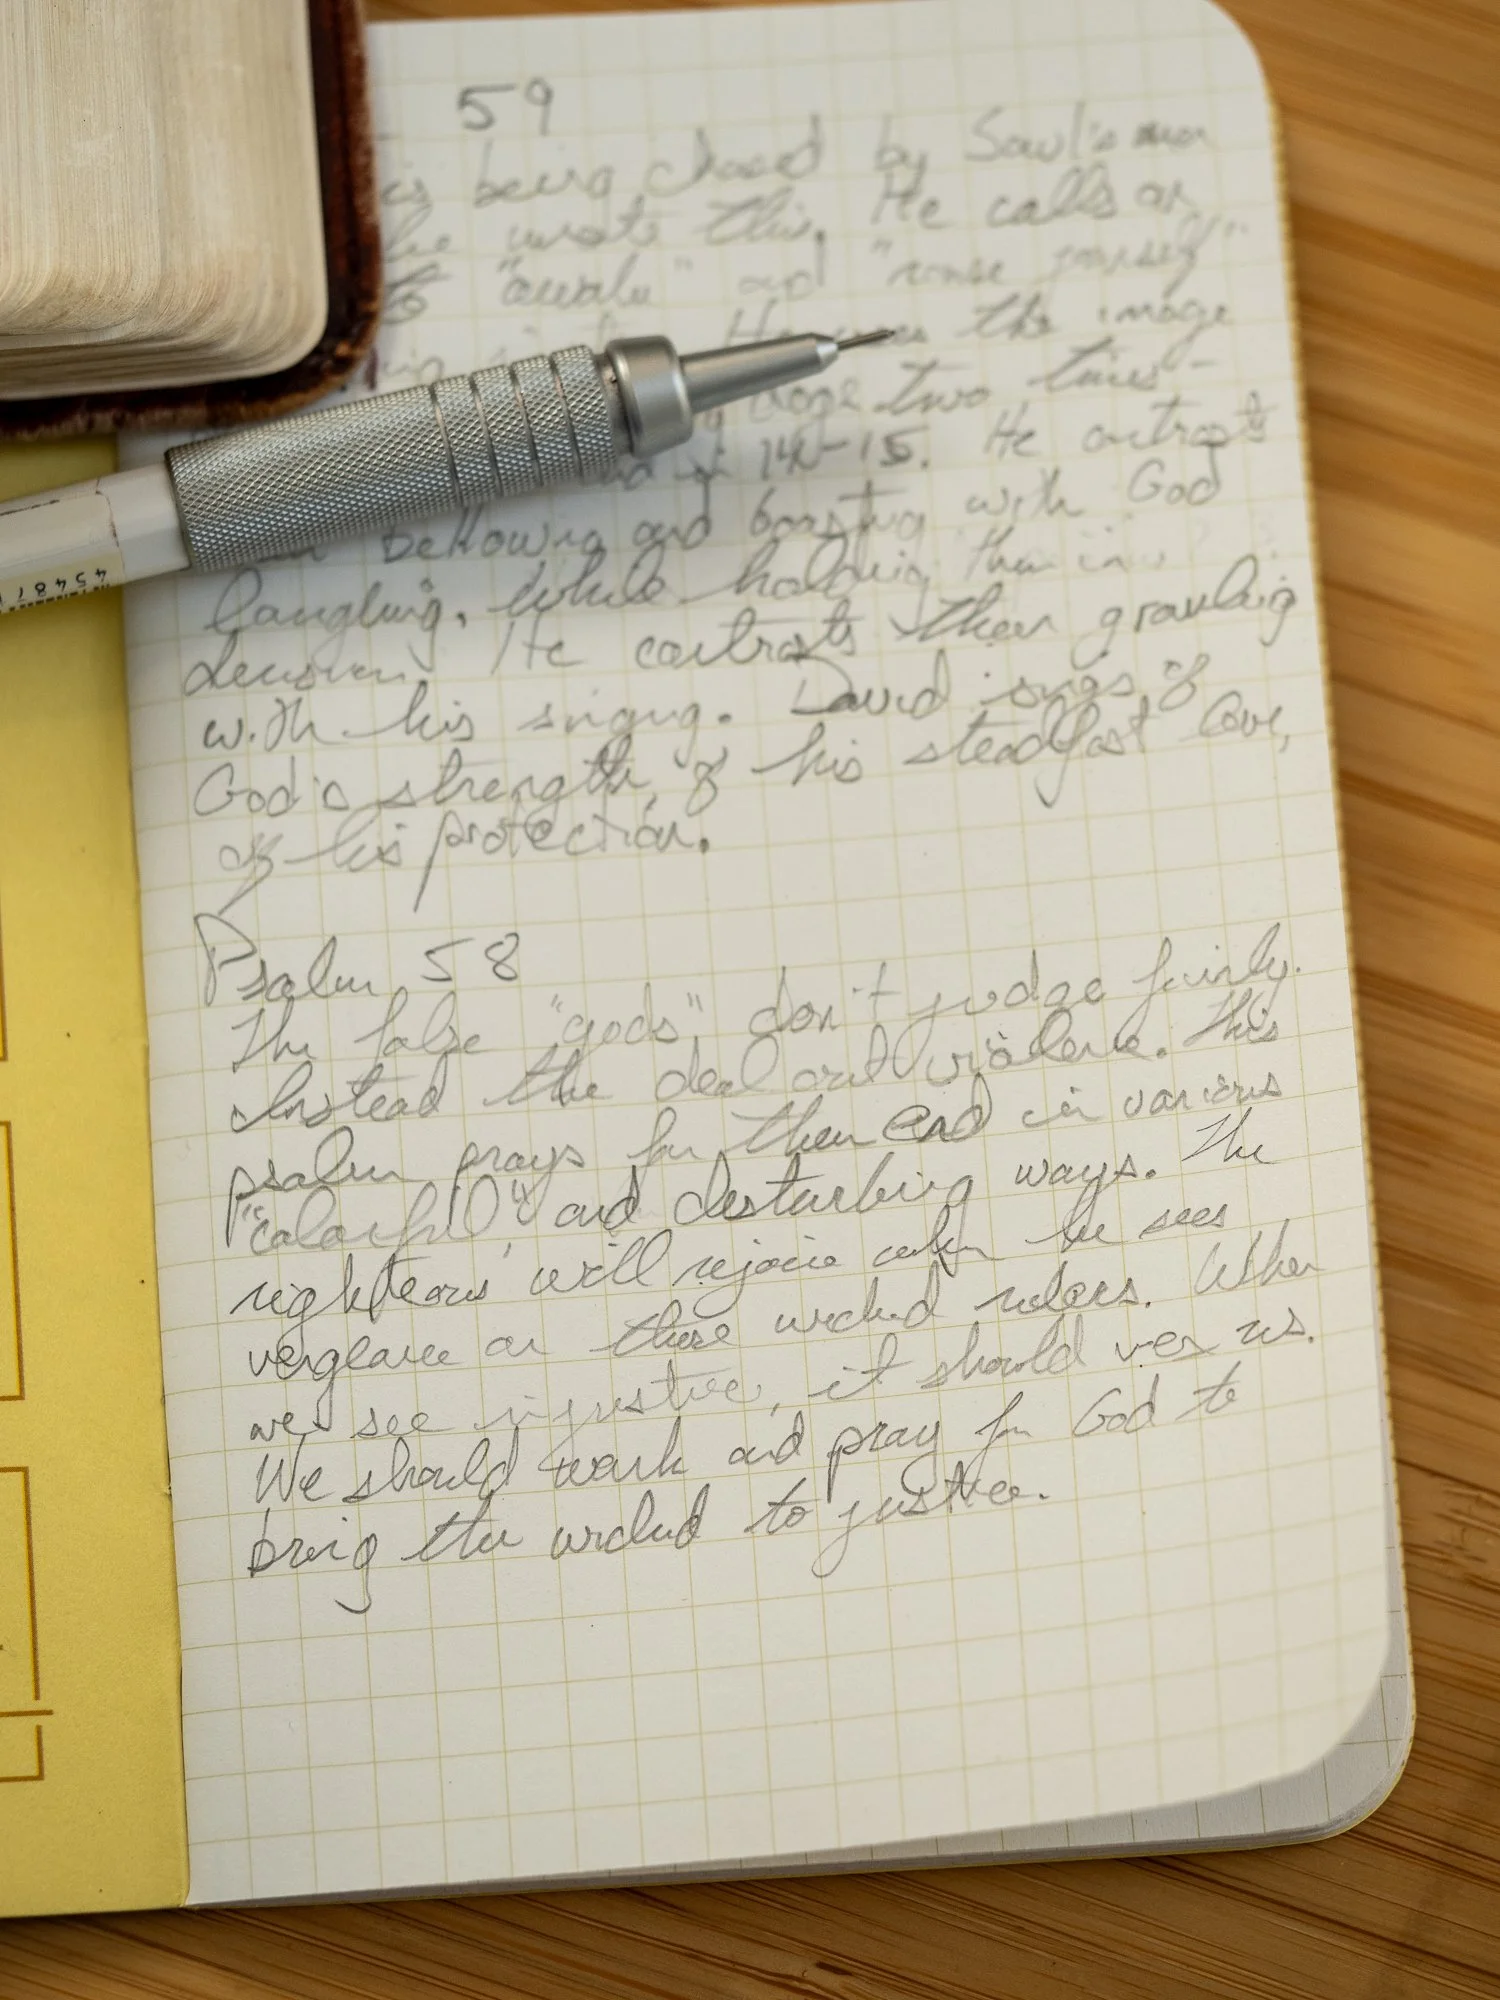 59
is being chased by Saul's men
he wrote this. He calls on
to "awake" and "rouse yourself"
He uses the image
dogs two times -
14-15. He contrasts
bellowing and boasting with God
laughing. While holding them in
derision. He contrasts their growling
with his singing. David sings of
God's strength, of his steadfast love,
of his protection.
Psalm 58
The false "gods" don't judge fairly.
Instead the deal out violence. This
psalm prays for their end in various
"colorful", and disturbing ways. The
righteous will rejoice when he sees
vengeance on these wicked rulers. When
we see injustice, it should vex us.
We should work and pray for God to
bring the wicked to justice.
45487